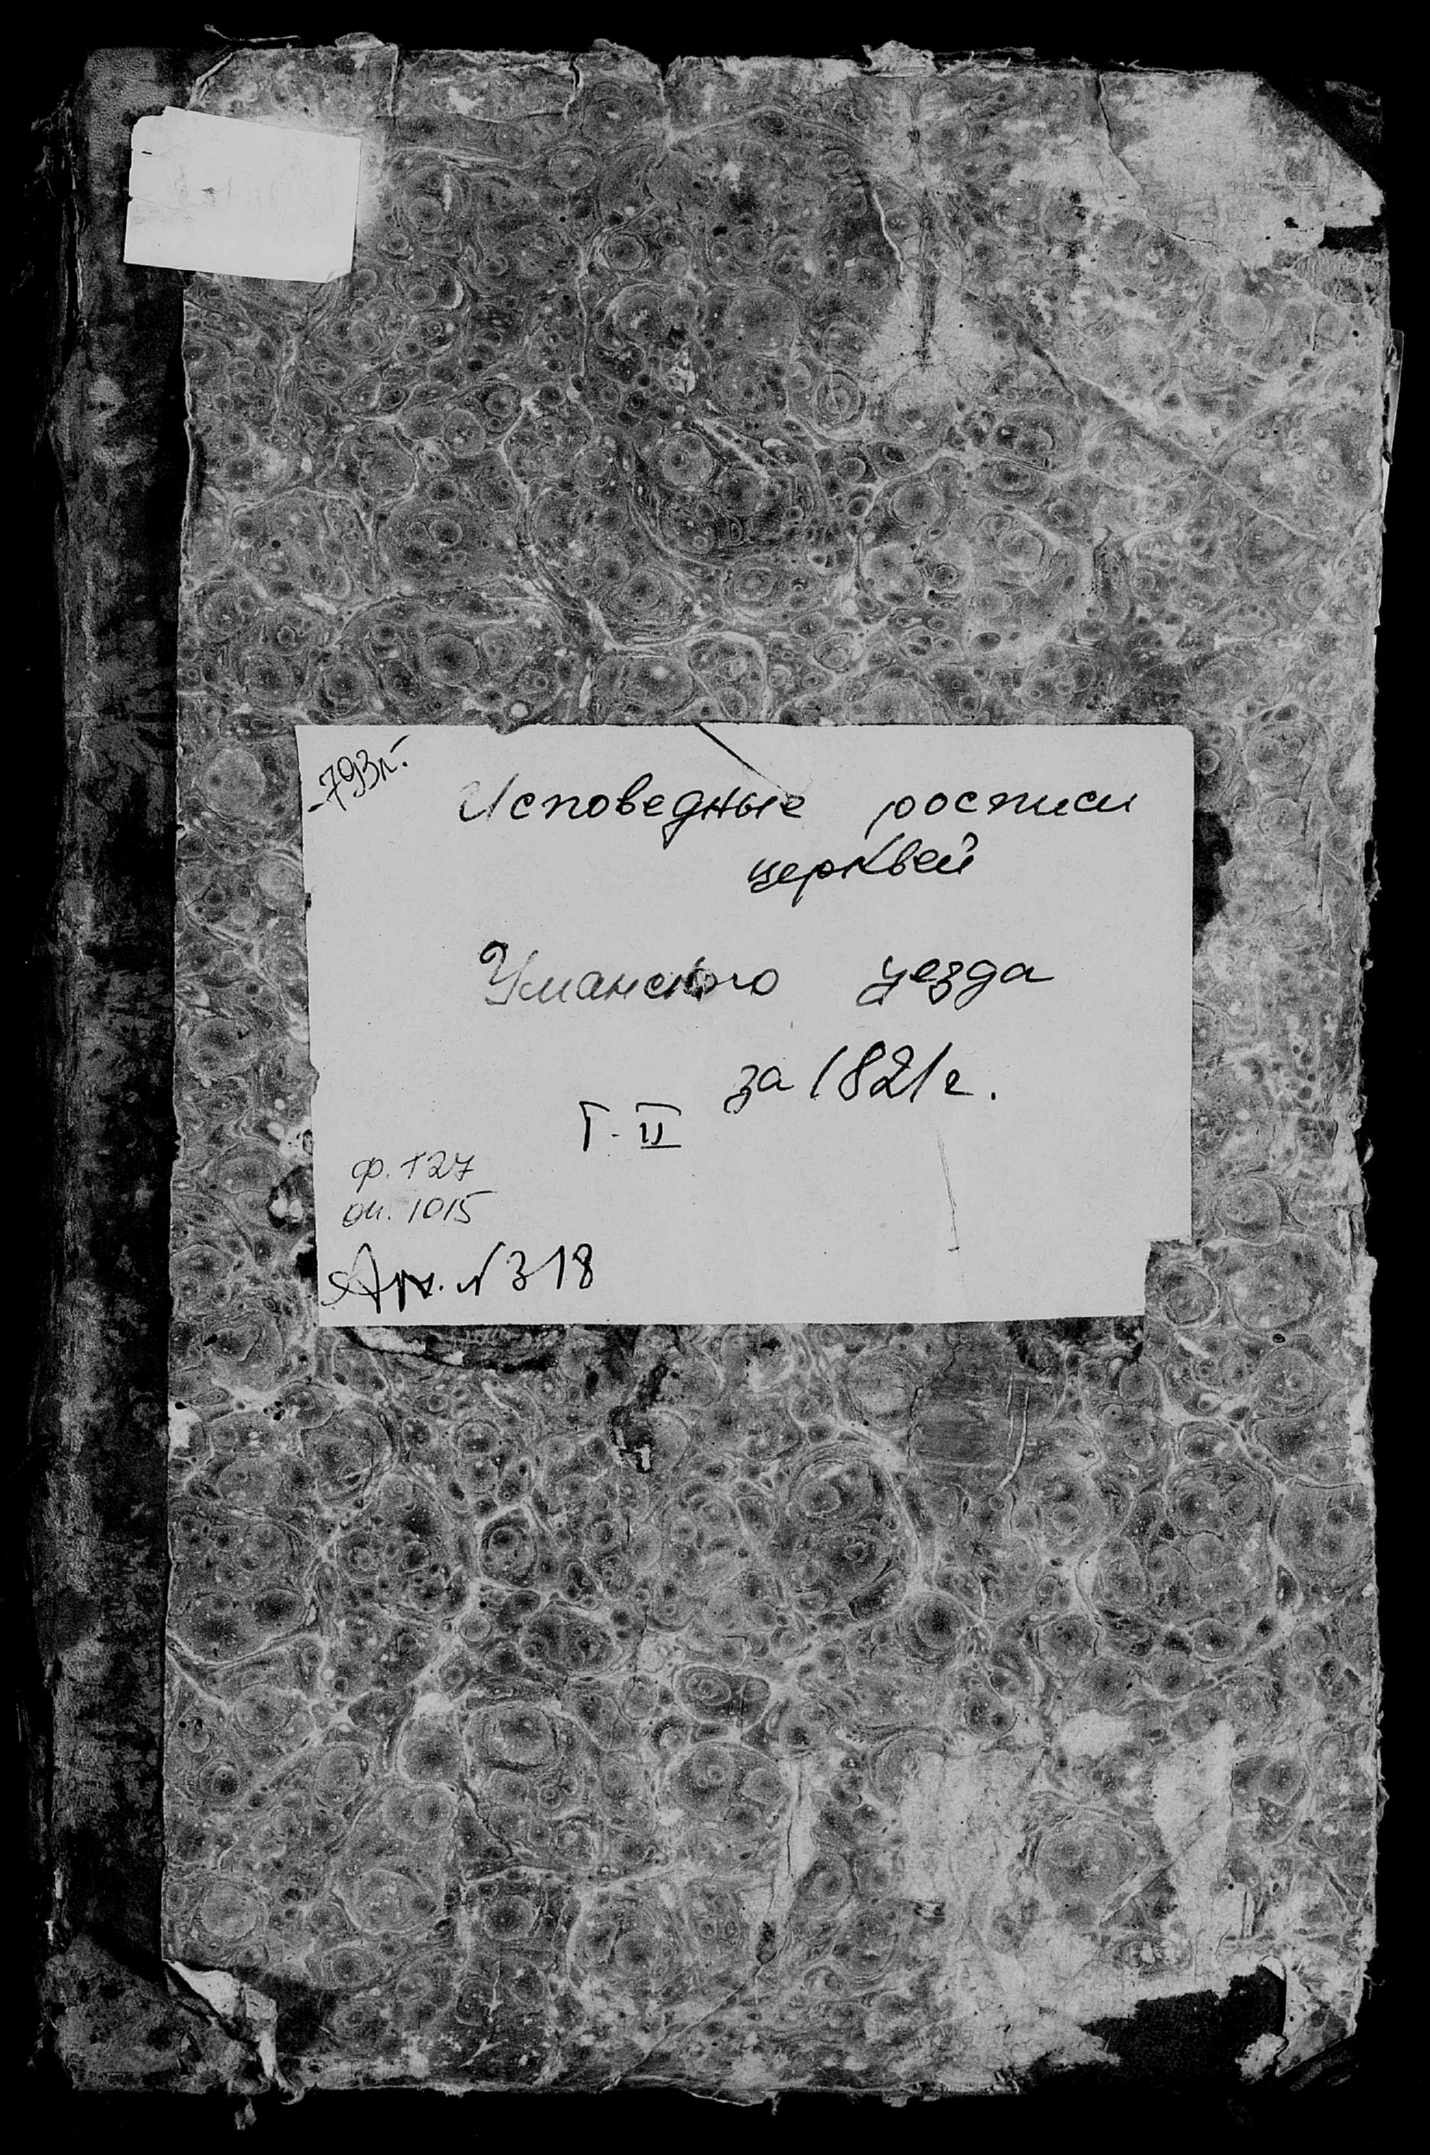 793л.
Исповедные росписи
церквей
Уманского уезда
за 1821г.
Т. II
ф. 127
оп. 1015
Арх. №318